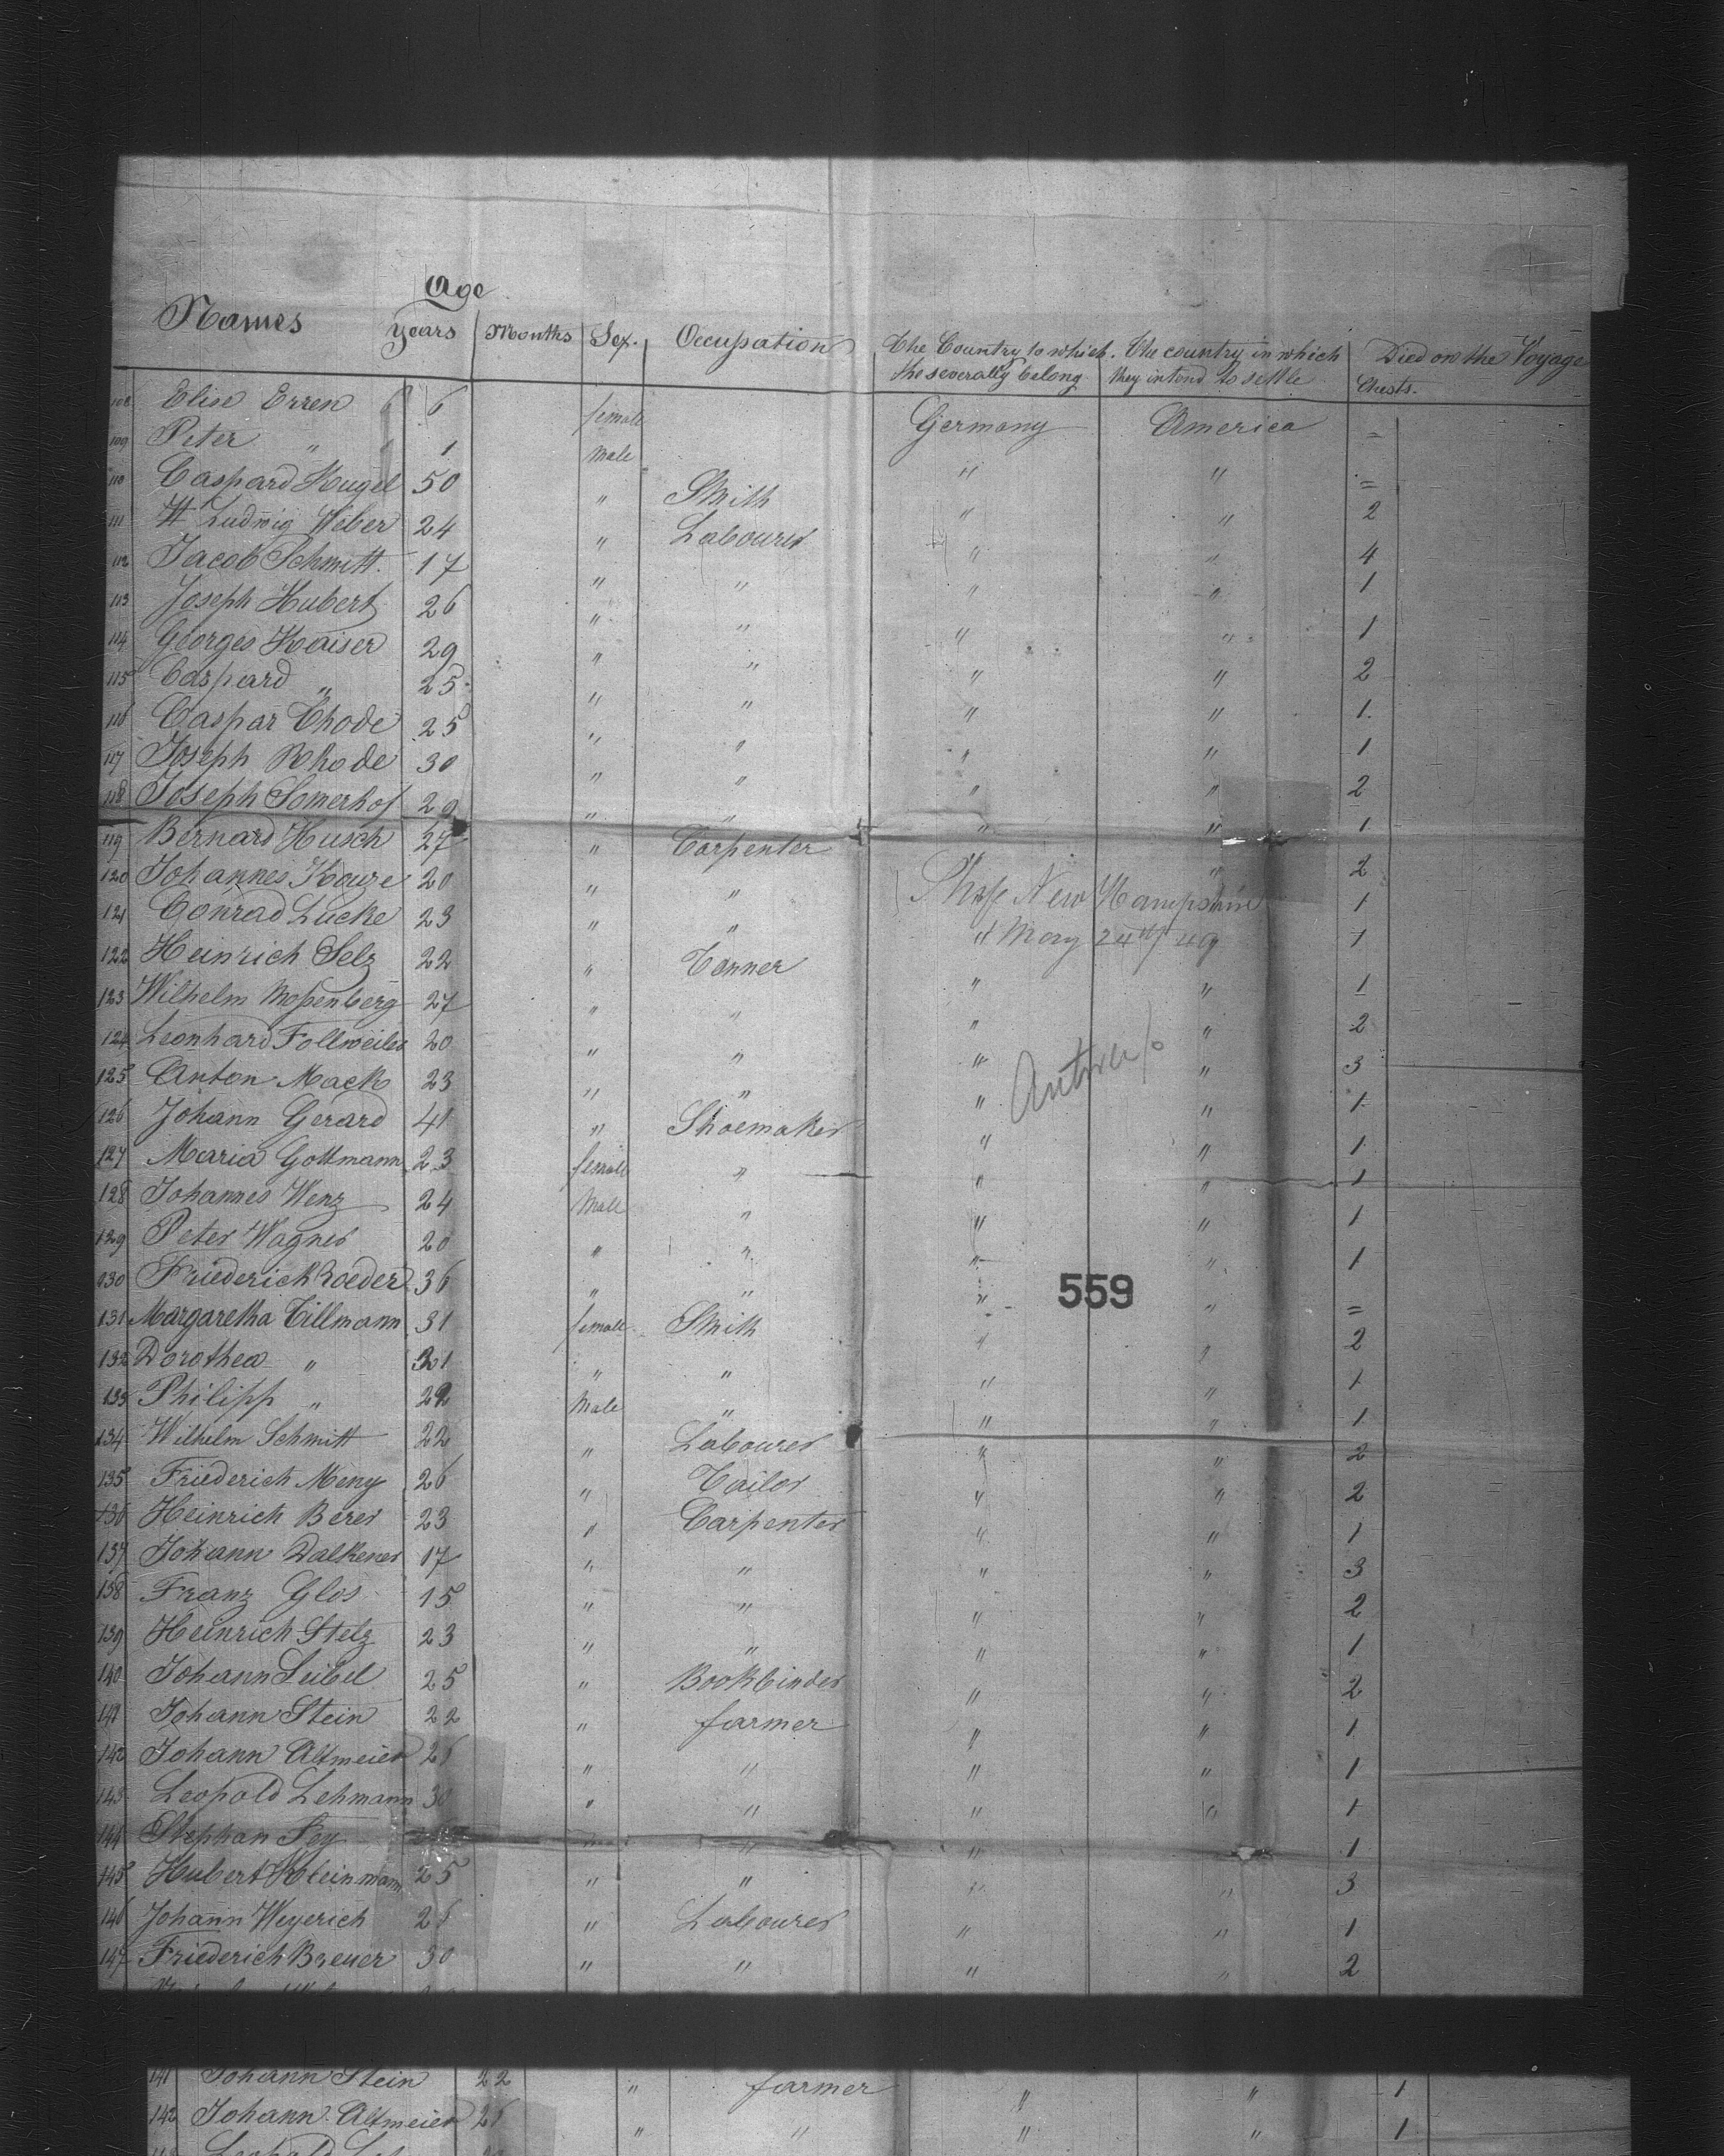 Age
Names years Months Sex. Occupation The Country to which the severally belong The country in which they intend to settle Chests. Died on the Voyage
108 Elise Erren 6 female Germany America =
109 Peter " 1 Male " " =
110 Caspard Hugel 50 " Smith " " 2
111 H Ludwig Weber 24 " Labourer " " 4
112 Jacob Schmitt 17 " " " " 1
113 Joseph Hubert 26 " " " " 1
114 Georges Kaiser 29 " " " " 2
115 Caspard " 25 " " " " 1.
116 Caspar Thode 25 " " " " 1
117 Joseph Rhode 30 " " " " 2
118 Joseph Somerhof 29 " " " " 1
119 Bernard Husch 27 " Carpenter " 2
120 Johannes Kouze 20 " " Ship New Hampshire 1
121 Conrad Lucke 23 " " " May 24th 49 1
122 Heinrich Selz 22 " Tanner " " 1
123 Wilhelm Moßenberg 27 " " " " 2
124 Leonhard Follweiler 20 " " " " 3
125 Anton Mack 23 " " " " 1
Antwerp
126 Johann Gerard 41 " Shoemaker " " 1
127 Maria Gottmann 23 female " " " 1
128 Johannes Wenz 24 Male " " " 1
129 Peter Wagner 20 " " " " 1
130 Friederich Roeder 36 " " " " =
559
131 Margaretha Tillmann 31 female Smith " " 2
132 Dorothea " 21 " " " " 1
133 Philipp " 22 Male " " " 1
134 Wilhelm Schmitt 22 " Labourer " " 2
135 Friederich Meny 26 " Tailor " " 2
136 Heinrich Berer 23 " Carpenter " " 1
137 Johann Dalkener 17 " " " " 3
138 Franz Glos 15 " " " " 2
139 Heinrich Stelz 23 " " " " 1
140 Johann Seibel 25 " Bookbinder " " 2
141 Johann Stein 22 " farmer " " 1
142 Johann Altmeier 26 " " " " 1
143 Leopold Lehmann 30 " " " " 1
144 Stephan Pey " " " 1
145 Hubert Kleinmann 25 " " " " 3
146 Johann Weyerich 26 " Labourer " " 1
147 Friederich Breuer 30 " " " " 2
141 Johann Stein 22 " farmer " " 1
142 Johann Altmeier 26 " " " " 1